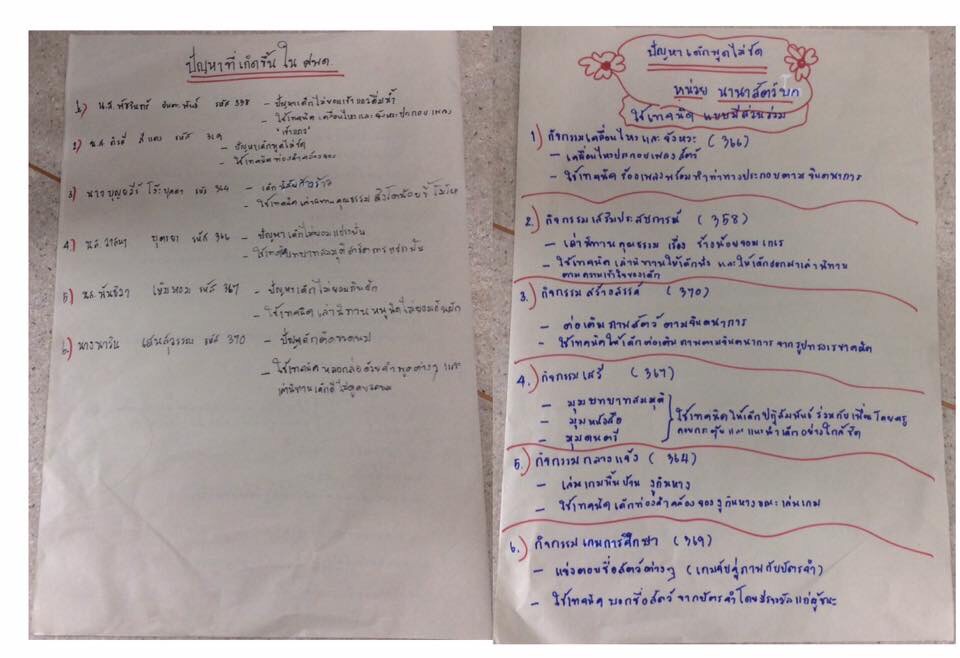 ปัญหาที่เกิดขึ้นใน ศพด.
1) น.ส. พัชรินทร์ รหัส 358 - ปัญหาเด็กไม่ยอมเข้าแถวดื่มน้ำ
- ใช้เทคนิค เคลื่อนไหวและจังหวะประกอบเพลง
"เข้าแถว"
2) น.ส. สีแดง รหัส 369
- ปัญหาเด็กพูดไม่ชัด
- ใช้เทคนิคท่องคำคล้องจอง
3) นาง รหัส 364 - เด็กนิสัยก้าวร้าว
- ใช้เทคนิค เล่านิทานคุณธรรม
4) น.ส. วาสนา บุตยา รหัส 366 - ปัญหาเด็กไม่ยอมแบ่งปัน
- ใช้เทคนิคบทบาทสมมุติสาธิตการแบ่งปัน
5) น.ส. พันธิวา เข็มหอม รหัส 367 - ปัญหาเด็กไม่ยอมกินผัก
- ใช้เทคนิค เล่านิทาน หนูนิดไม่ยอมกินผัก
6) นาง รหัส 370 - ปัญหาเด็กติดขวดนม
- ใช้เทคนิค หลอกล่อด้วยคำพูดต่างๆ และ
เล่านิทานเด็กดีไม่ดูดขวดนม
ปัญหาเด็กพูดไม่ชัด
หน่วย นานาสัตว์บก
ใช้เทคนิค แบบมีส่วนร่วม
1.) กิจกรรมเคลื่อนไหวและจังหวะ (366)
- เคลื่อนไหวประกอบเพลงสัตว์
- ใช้เทคนิค ร้องเพลงพร้อมทำท่าทางประกอบตามจินตนาการ
2.) กิจกรรมเสริมประสบการณ์ (358)
- เล่านิทานคุณธรรม เรื่อง ช้างน้อยจอมเกเร
- ใช้เทคนิค เล่านิทานให้เด็กฟัง และให้เด็กออกมาเล่านิทาน
ตามความเข้าใจของเด็ก
3.) กิจกรรมสร้างสรรค์ (370)
- ต่อเติมภาพสัตว์ตามจินตนาการ
- ใช้เทคนิคให้เด็กต่อเติมภาพตามจินตนาการจากรูปทรงเรขาคณิต
4.) กิจกรรมเสรี (367)
- มุมบทบาทสมมุติ
- มุมหนังสือ
- มุมดนตรี
ใช้เทคนิคให้เด็กปฏิสัมพันธ์ร่วมกับเพื่อนโดยครู
คอยกระตุ้นและแนะนำเด็กอย่างใกล้ชิด
5.) กิจกรรมกลางแจ้ง (364)
- เล่นเกมพื้นบ้าน งูกินหาง
- ใช้เทคนิค เด็กท่องคำคล้องจองงูกินหางขณะเล่นเกม
6.) กิจกรรมเกมการศึกษา (369)
- แข่งตอบชื่อสัตว์ต่างๆ (เกมจับคู่ภาพกับบัตรคำ)
- ใช้เทคนิค บอกชื่อสัตว์จากบัตรคำโดยมีรางวัลแก่ผู้ชนะ